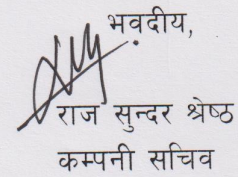 भवदीय,
राज सुन्दर श्रेष्ठ
कम्पनी सचिव